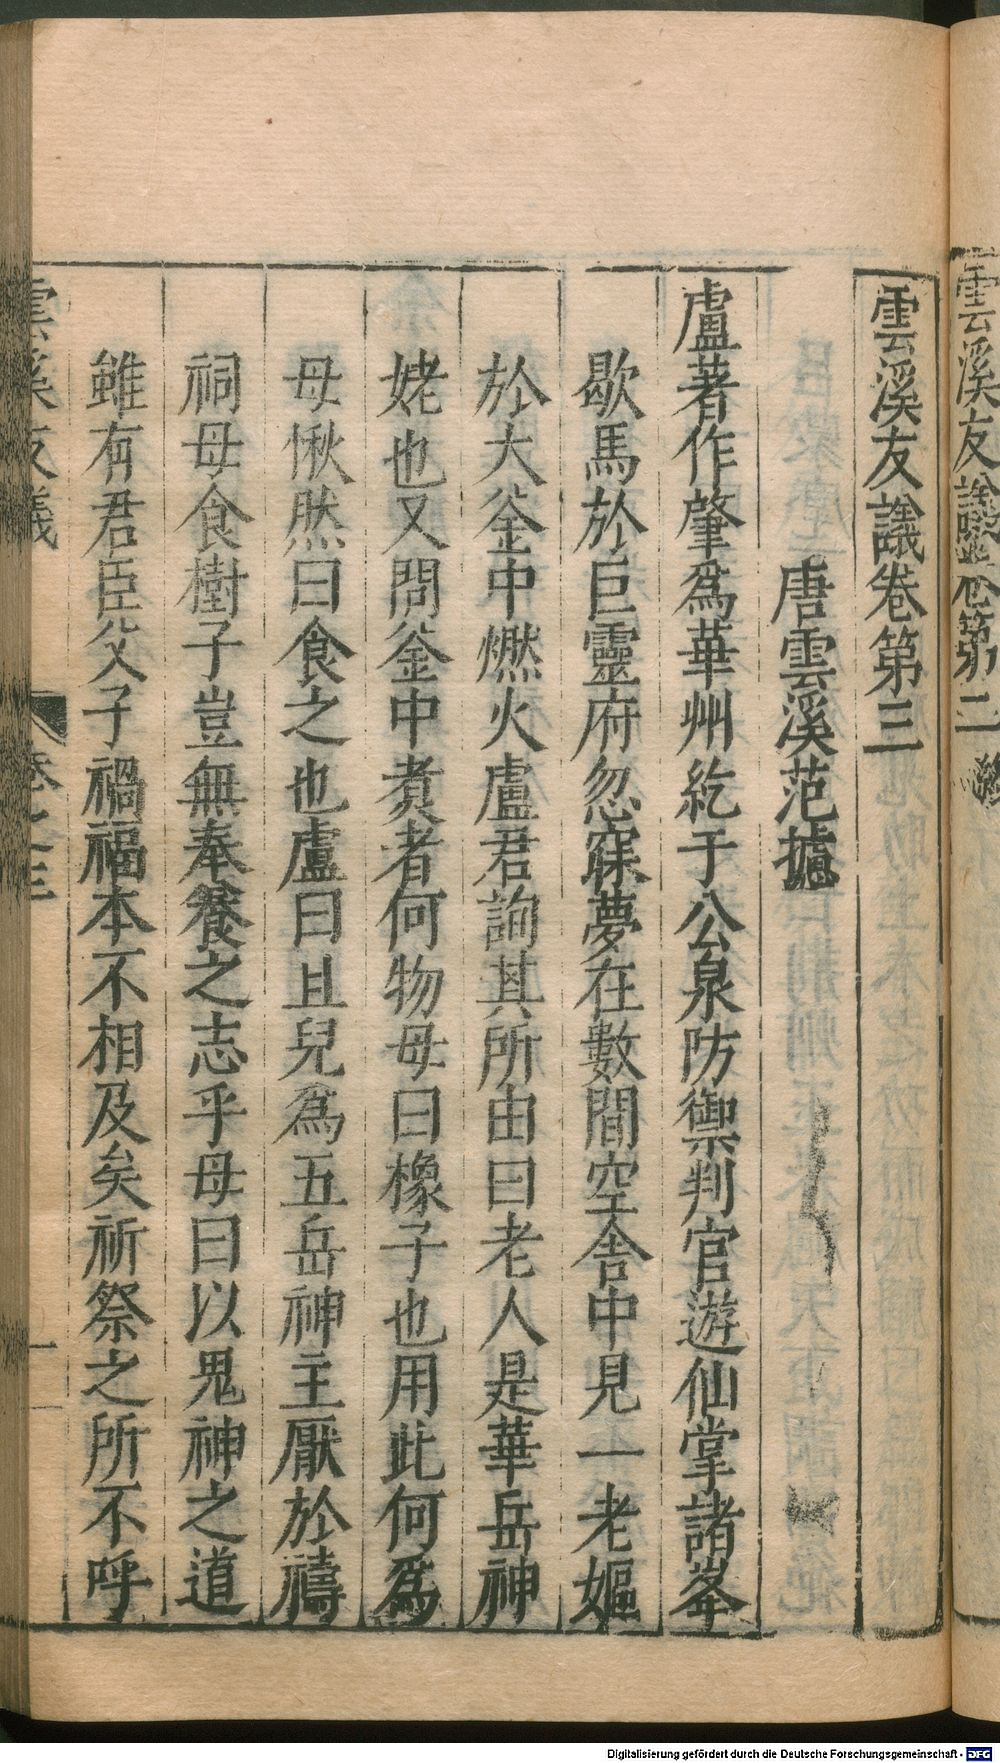 雲溪友議卷第二終
雲溪友議卷第三
唐雲溪范攄
盧著作肇爲華州紇于公泉防禦判官遊仙掌諸峯
歇馬於巨靈府忽寐夢在數間空舍中見一老嫗
於大釜中燃火盧君詢其所由曰老人是華岳神
姥也又問釜中煑者何物母曰橡子也用此何爲
母愀然曰食之也盧曰且兒爲五岳神主厭於禱
祠母食樹子豈無奉養之志乎母曰以鬼神之道
雖有君臣父子禍福本不相及矣祈祭之所不呼
雲溪友議
卷之三
一
Digitalisierung gefördert durch die Deutsche Forschungsgemeinschaft - DFG